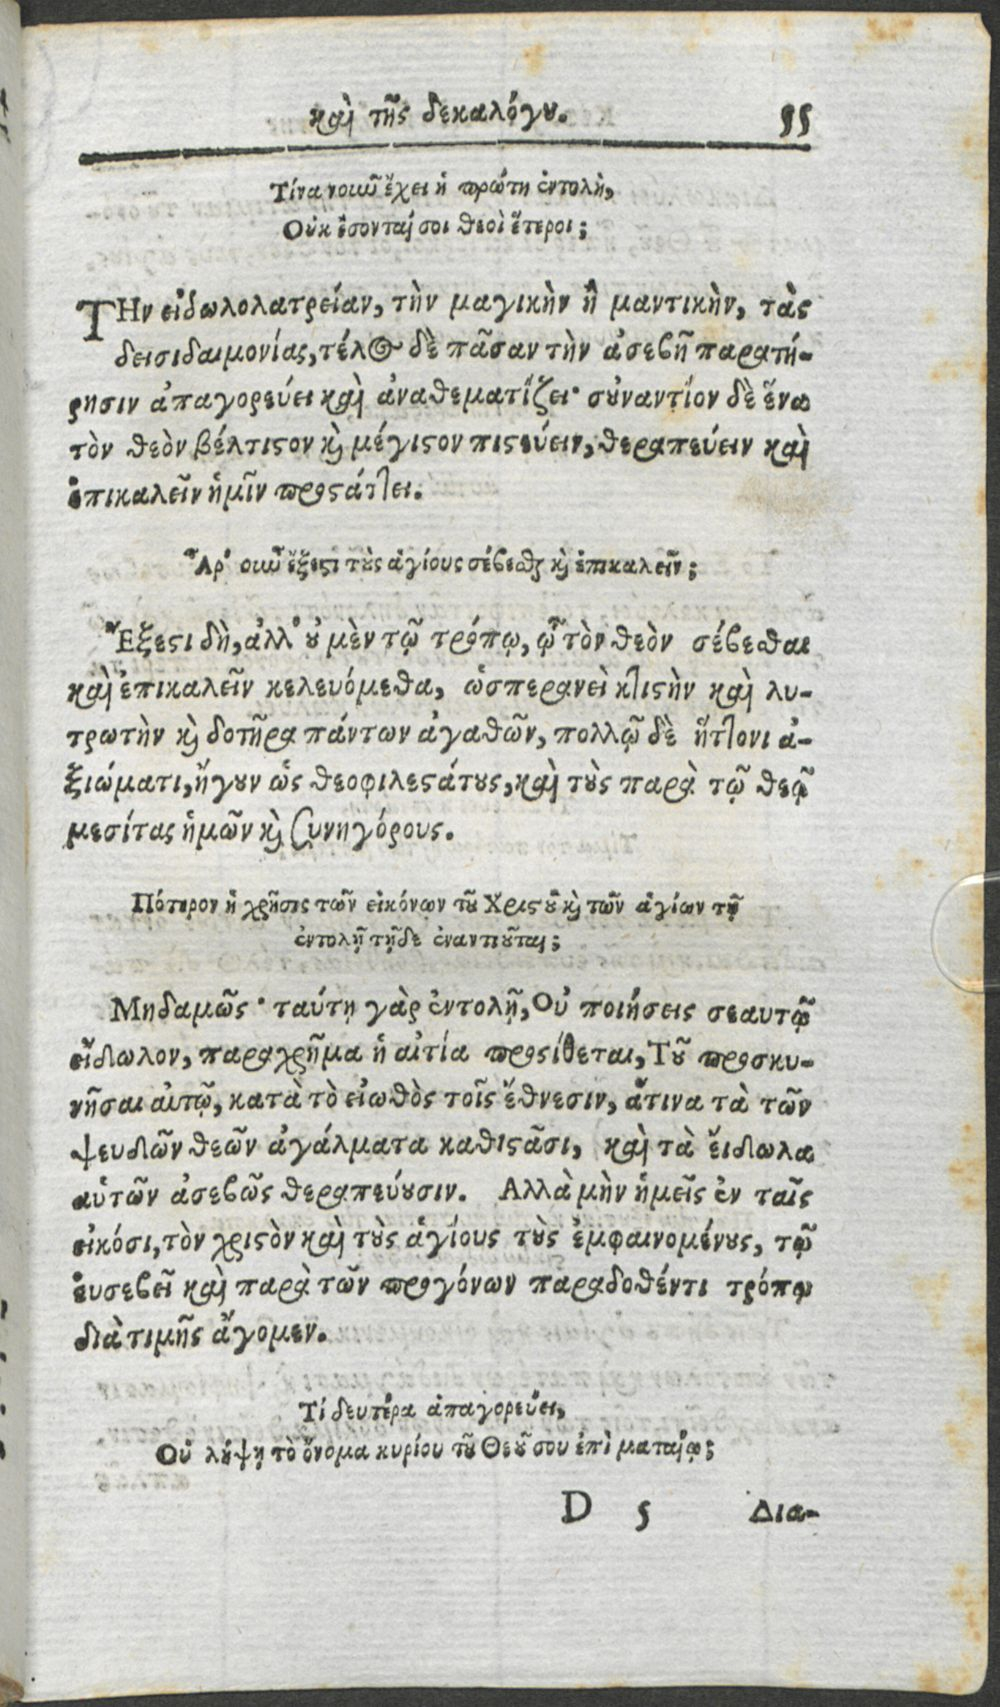 καὶ τῆς δεκαλόγου. 55
Τίνα νοῦν ἔχει ἡ πρώτη ἐντολὴ,
Οὐκ ἔσονταί σοι θεοὶ ἕτεροι;
ΤΗν εἰδωλολατρείαν, τὴν μαγικὴν ἢ μαντικὴν, τὰς
δεισιδαιμονίας, τέλος δὲ πᾶσαν τὴν ἀσεβῆ παρατή-
ρησιν ἀπαγορεύει καὶ ἀναθεματίζει· σοὐναντίον δὲ ἕνα
τὸν θεὸν βέλτιστον καὶ μέγιστον πιστεύειν, θεραπεύειν καὶ
ἐπικαλεῖν ἡμῖν προστάττει.
Ἆρ' οὖν ἔξεστι τοὺς ἁγίους σέβεσθαι καὶ ἐπικαλεῖν;
Ἔξεστι δὴ, ἀλλ' οὐ μὲν τῷ τρόπῳ, ᾧ τὸν θεὸν σέβεσθαι
καὶ ἐπικαλεῖν κελευόμεθα, ὡσπερανεὶ κτιστὴν καὶ λυ-
τρωτὴν καὶ δοτῆρα πάντων ἀγαθῶν, πολλῷ δὲ ἥττονι ἀ-
ξιώματι, ἤγουν ὡς θεοφιλεστάτους, καὶ τοὺς παρὰ τῷ θεῷ
μεσίτας ἡμῶν καὶ συνηγόρους.
Πότερον ἡ χρῆσις τῶν εἰκόνων τοῦ Χριστοῦ καὶ τῶν ἁγίων τῇ
ἐντολῇ τῇδε ἐναντιοῦται;
Μηδαμῶς· ταύτῃ γὰρ ἐντολῇ, Οὐ ποιήσεις σεαυτῷ
εἴδωλον, παραχρῆμα ἡ αἰτία προστίθεται, Τοῦ προσκυ-
νῆσαι αὐτῷ, κατὰ τὸ εἰωθὸς τοῖς ἔθνεσιν, ἅτινα τὰ τῶν
ψευδῶν θεῶν ἀγάλματα καθιστᾶσι, καὶ τὰ ἔιδωλα
αὑτῶν ἀσεβῶς θεραπεύουσιν. Αλλὰ μὴν ἡμεῖς ἐν ταῖς
εἰκόσι, τὸν χριστὸν καὶ τοὺς ἁγίους τοὺς ἐμφαινομένους, τῷ
ἐυσεβεῖ καὶ παρὰ τῶν προγόνων παραδοθέντι τρόπῳ
διὰ τιμῆς ἄγομεν.
Τί δευτέρα ἀπαγορεύει,
Οὐ λήψῃ τὸ ὄνομα κυρίου τοῦ Θεοῦ σου ἐπὶ ματαίῳ;
D 5 Δια-